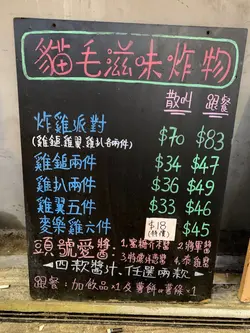 貓毛滋味炸物
散叫 跟餐
炸雞派對 $70 $83
(雞鎚雞翼雞扒各兩件)
雞鎚兩件 $34 $47
雞扒兩件 $36 $49
雞翼五件 $33 $46
麥樂雞六件 $18 (特價) $45
頭號愛醬 1.蜜糖芥末醬 2.將軍醬
3.特濃 4.
四款醬汁,任選兩款
跟餐:加飲品×1 及薯餅、×1